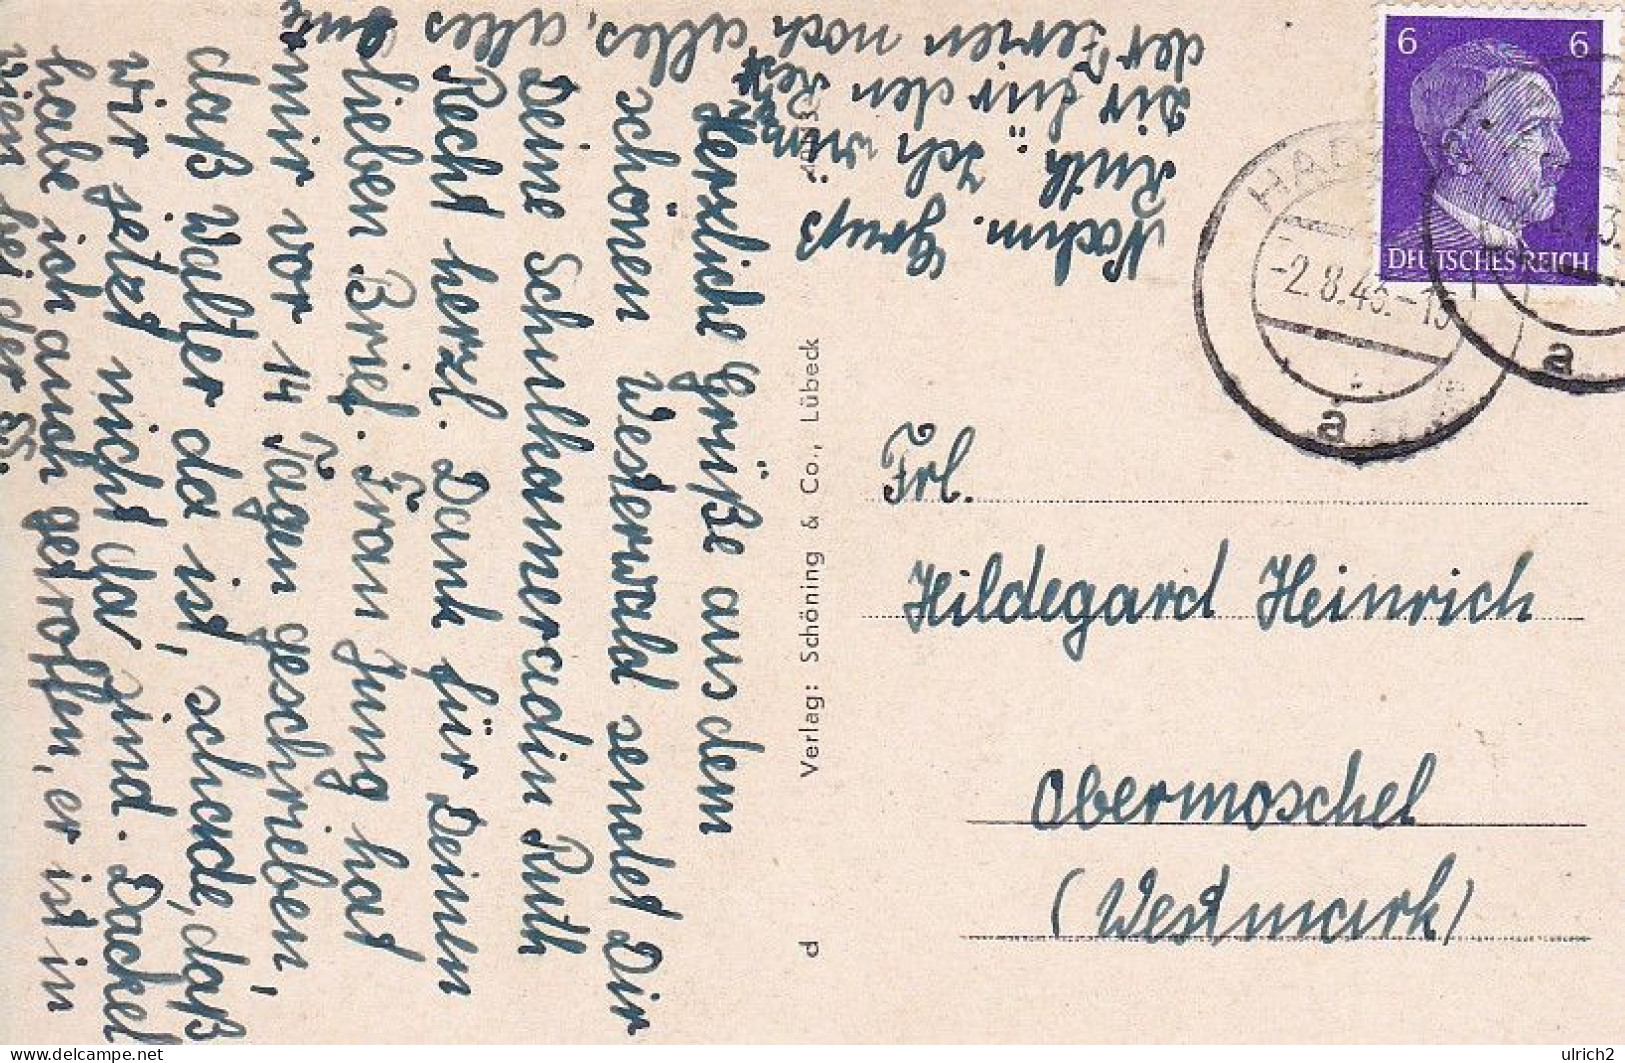 Herzliche Grüße aus dem
schönen Westerwald sendet Dir
Deine Schulkameradin Ruth
Recht herzl. Dank für Deinen
lieben Brief. Fram Jung hat
mir vor 14 Tagen geschrieben,
daß Walter da ist, schade, daß
wir jetzt nicht da sind. Dackel
habe ich auch getroffen, er ist in
Wien bei der SS.
Gruß
Ruth. Ich wün
Dir für den Rest
der Ferien noch alles, alles
Verlag: Schöning & Co., Lübeck
d
6 6
DEUTSCHES REICH
-2.8.43.-15
a
a
Frl.
Hildegard Heinrich
Obermoschel
(Westmark)
ulrich2